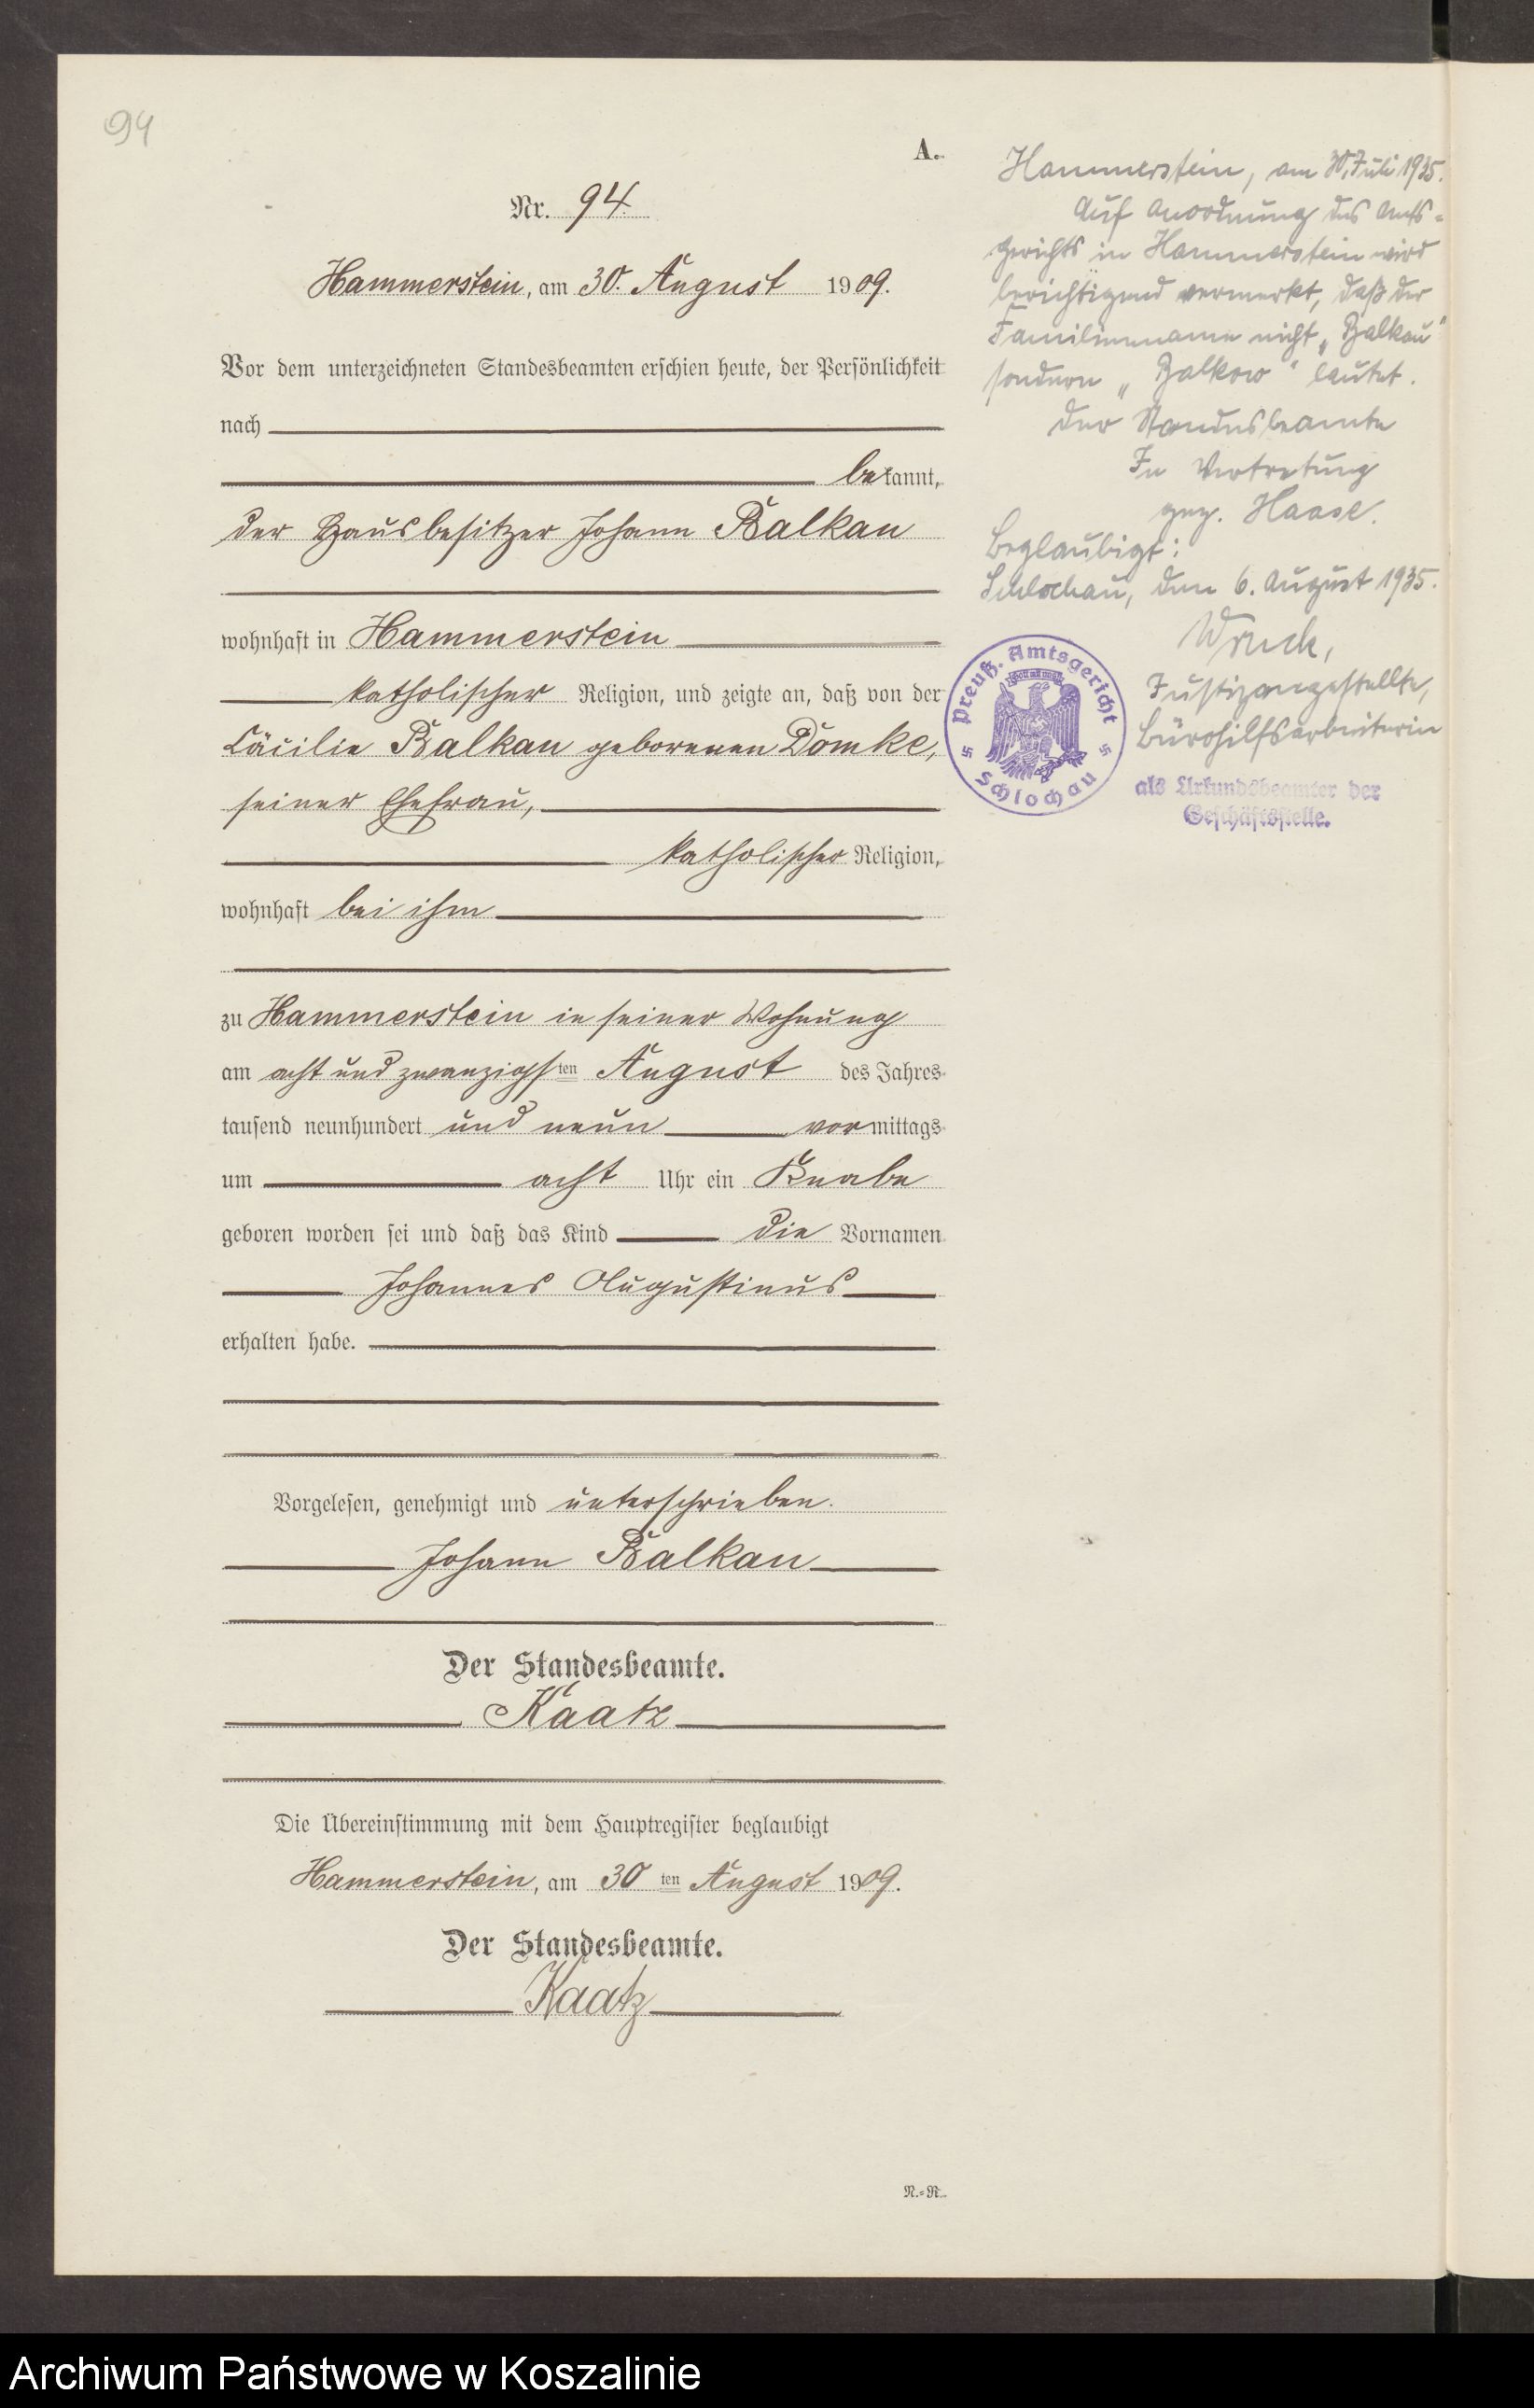 94
A.
Nr. 94.
Hammerstein, am 30. August 1909.
Vor dem unterzeichneten Standesbeamten erschien heute, der Persönlichkeit
nach
bekannt,
der Hausbesitzer Johann Balkau
wohnhaft in Hammerstein
katholischer Religion, und zeigte an, daß von der
Cäcilie Balkau geborenen Domke,
seiner Ehefrau,
katholischer Religion,
wohnhaft bei ihm
zu Hammerstein in seiner Wohnung
am acht und zwanzigsten August des Jahres
tausend neunhundert und neun vormittags
um acht Uhr ein Knabe
geboren worden sei und daß das Kind die Vornamen
Johannes Augustinus
erhalten habe.
Vorgelesen, genehmigt und unterschrieben.
Johann Balkau
Der Standesbeamte.
Kaatz
Die Übereinstimmung mit dem Hauptregister beglaubigt
Hammerstein, am 30ten August 1909.
Der Standesbeamte.
Kaatz
N.=R.
Hammerstein, am 30. Juli 1935.
Auf Anordnung des Amts-
gerichts in Hammerstein wird
berichtigend vermerkt, daß der
Familienname nicht „Balkau"
sondern „Balkow" lautet.
Der Standesbeamte
In Vertretung
gez. Haase.
Beglaubigt:
Schlochau, den 6. August 1935.
Wruck,
Justizangestellte,
Bürohilfsarbeiterin
als Urkundsbeamter der
Geschäftsstelle.
Preuß. Amtsgericht
Schlochau
Archiwum Państwowe w Koszalinie